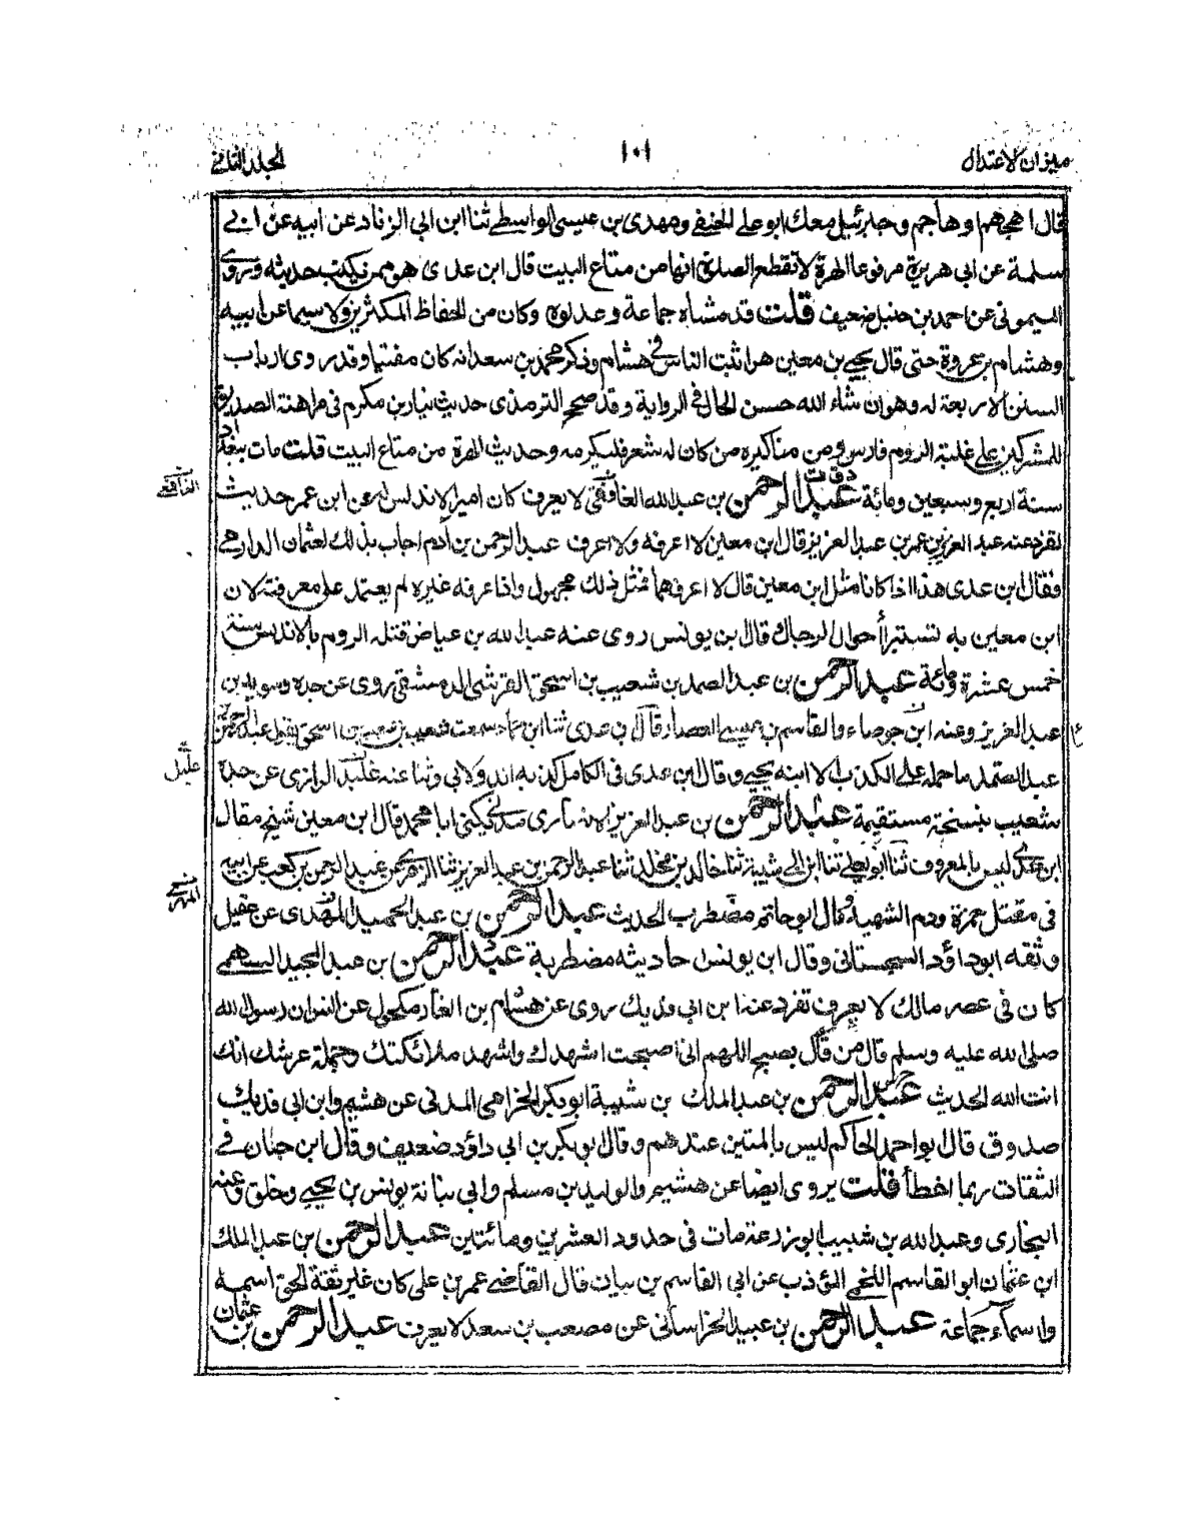 ميزان الاعتدال
١٠١
الجلد الثانى
قال اهجهم اوهاجهم وجبرئيل معك ابو على الحنفى ومهدى بن عيسى الواسطى ثنا ابن ابى الزناد عن ابيه عن ابى
سلمة عن ابى هريرة مرفوعا الهرة لا تقطع الصلوة انها من متاع البيت قال ابن عدى هو ممن يكتب حديثه وروى
الميمونى عن احمد بن حنبل ضعيف قلت قد مشاه جماعة وعدلوه وكان من الحفاظ المكثرين ولا سيما عن ابيه
وهشام بن عروة حتى قال يحيى بن معين هو اثبت الناس فى هشام وذكر محمد بن سعد انه كان مفتيا وقد روى ارباب
السنن الاربعة له وهو ان شاء الله حسن الحال فى الرواية وقد صحح الترمذى حديث نيار بن مكرم فى مراهنة الصديق
للمشركين على غلبة الروم فارس ومن مناكيره من كان له شعر فليكرمه وحديث الهرة من متاع البيت قلت مات ببغداد
سنة اربع وسبعين ومائة عبد الرحمن بن عبد الله الغافقى لا يعرف كان امير الاندلس عن ابن عمر حديث
تفرد عنه عبد العزيز بن عمر بن عبد العزيز قال ابن معين لا اعرفه ولا اعرف عبد الرحمن بن آدم اجاب بذلك لعثمان الدارمى
فقال ابن عدى هذا اذا كانا مثل ابن معين قال لا اعرفهما فمثل ذلك مجهول واذا عرفه غيره لم يعتمد على معرفته لان
ابن معين به تستبرأ احوال الرجال قال بن يونس روى عنه عبد الله بن عياض قتله الروم بالاندلس سنة
خمس عشرة ومائة عبد الرحمن بن عبد الصمد بن شعيب بن اسحق القرشى الدمشقى روى عن جده وسويد بن
عبد العزيز وعنه ابن جوصاء والقاسم بن عيسى العصار قال بن عدى ثنا ابن حماد سمعت شعيب بن شعيب بن اسحق يقول عبد الرحمن بن
عبد الصمد ما حمله على الكذب الا ابنه يحيى وقال ابن عدى فى الكامل كذبه الدولابى وثنا عنه الرازى عن جده
شعيب بنسخة مستقيمة عبد الرحمن بن عبد العزيز الانصارى مدنى يكنى ابا محمد قال ابن معين شيخ مقال
ابن عدى ليس بالمعروف ثنا ابو يعلى ثنا ابن ابى شيبة ثنا خالد بن مخلد ثنا عبد الرحمن بن عبد العزيز ثنا الزهرى عن عبد الرحمن بن كعب عن ابيه
فى مقتل حمزة ودم الشهيد وقال ابو حاتم مضطرب الحديث عبد الرحمن بن عبد الحميد المهدى عن عقيل
وثقه ابو داؤد السجستانى وقال ابن يونس حاديثه مضطربة عبد الرحمن بن عبد المجيد السهمى
كان فى عصر مالك لا يعرف تفرد عنه ابن ابى فديك يروى عن هشام بن الغاز مكحول عن انس ان رسول الله
صلى الله عليه وسلم قال من قال يصبح اللهم انى اصبحت اشهدك واشهد ملائكتك وحملة عرشك انك
انت الله الحديث عبد الرحمن بن عبد الملك بن شيبة ابو بكر الحزامى المدنى عن هشيم وابن ابى فديك
صدوق قال ابو احمد الحاكم ليس بالمتين عندهم وقال ابو بكر بن ابى داؤد ضعيف وقال ابن حبان فى
الثقات ربما اخطأ قلت يروى ايضا عن هشيم والوليد بن مسلم وابى نباتة يونس بن يحيى وخلق وعنه
البخارى وعبد الله بن شبيب ابو زرعة مات فى حدود العشرين ومائتين عبد الرحمن بن عبد الملك
ابن عثمان ابو القاسم اللخمى المؤذب عن ابى القاسم بن بيان قال القاضى عمر بن على كان غير ثقة الحق اسمه
واسماء جماعة عبد الرحمن بن عبيد الخراسانى عن مصعب بن سعد لا يعرف عبد الرحمن بن عثمان